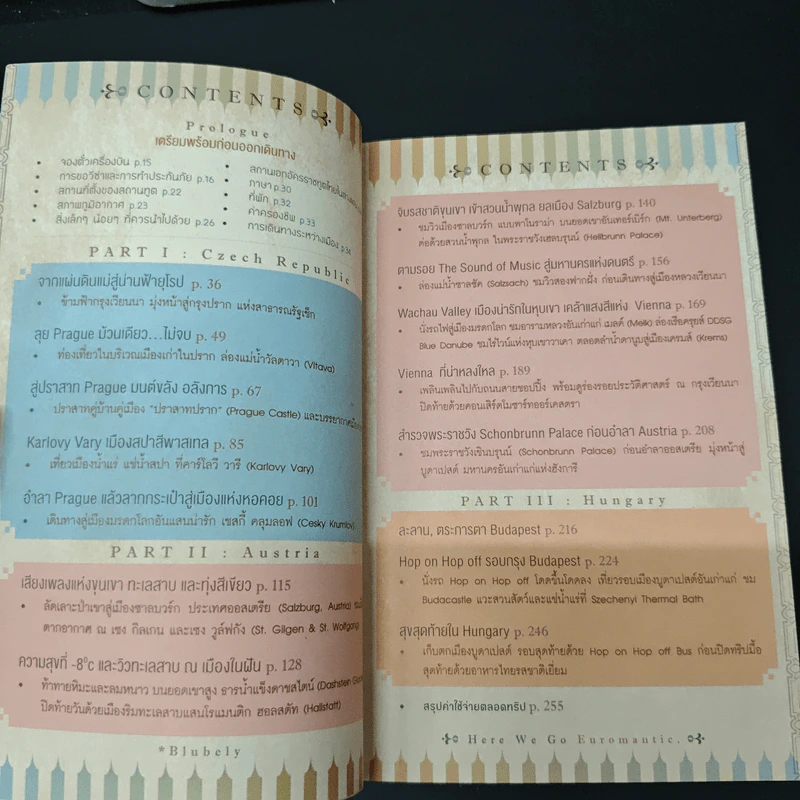 CONTENTS
Prologue
เตรียมพร้อมก่อนออกเดินทาง
• จองตั๋วเครื่องบิน p.15
• การขอวีซ่าและการทำประกันภัย p.16
• สถานที่ตั้งของสถานทูต p.22
• สภาพภูมิอากาศ p.23
• สิ่งเล็กๆ น้อยๆ ที่ควรนำไปด้วย p.26
• สถานเอกอัครราชทูตไทยใน
• ภาษา p.30
• ที่พัก p.32
• ค่าครองชีพ p.33
• การเดินทางระหว่างเมือง p.34
PART I : Czech Republic
จากแผ่นดินแม่สู่น่านฟ้ายุโรป p. 36
• ข้ามฟ้ากรุงเวียนนา มุ่งหน้าสู่กรุงปราก แห่งสาธารณรัฐเช็ก
ลุย Prague ม้วนเดียว...ไม่จบ p. 49
• ท่องเที่ยวในบริเวณเมืองเก่าในปราก ล่องแม่น้ำวัลตาวา (Vltava)
สู่ปราสาท Prague มนต์ขลัง อลังการ p. 67
• ปราสาทคู่บ้านคู่เมือง "ปราสาทปราก" (Prague Castle) และบรรยากาศ
Karlovy Vary เมืองสปาสีพาสเทล p. 85
• เที่ยวเมืองน้ำแร่ แช่น้ำสปา ที่คาร์โลวี วารี (Karlovy Vary)
อำลา Prague แล้วลากกระเป๋าสู่เมืองแห่งหอคอย p. 101
• เดินทางสู่เมืองมรดกโลกอันแสนน่ารัก เชสกี้ คลุมลอฟ (Cesky Krumlov)
PART II : Austria
เสียงเพลงแห่งขุนเขา ทะเลสาบ และทุ่งสีเขียว p. 115
• ลัดเลาะป่าเขาสู่เมืองซาลบวร์ก ประเทศออสเตรีย (Salzburg, Austria)
ตากอากาศ ณ เซง กิลเกน และเซง วูล์ฟกัง (St. Gilgen & St. Wolfgang)
ความสุขที่ -8°c และวิวทะเลสาบ ณ เมืองในฝัน p. 128
• ท้าทายหิมะและลมหนาว บนยอดเขาสูง ธารน้ำแข็งดาชสไตน์ (Dachstein
ปิดท้ายวันด้วยเมืองริมทะเลสาบแสนโรแมนติก ฮอลสตัท (Hallstatt)
*Blubely
CONTENTS
จิบรสชาติขุนเขา เข้าสวนน้ำพุกล ยลเมือง Salzburg p. 140
• ชมวิวเมืองซาลบวร์ก แบบพาโนรามา บนยอดเขาอันเทอร์เบิร์ก (Mt. Unterberg)
ต่อด้วยสวนน้ำพุกล ในพระราชวังเฮลบรุนน์ (Hellbrunn Palace)
ตามรอย The Sound of Music สู่มหานครแห่งดนตรี p. 156
• ล่องแม่น้ำซาลซัค (Salzsach) ชมวิวสองฟากฝั่ง ก่อนเดินทางสู่เมืองหลวงเวียนนา
Wachau Valley เมืองน่ารักในหุบเขา เคล้าแสงสีแห่ง Vienna p. 169
• นั่งรถไฟสู่เมืองมรดกโลก ชมอารามหลวงอันเก่าแก่ เมลค์ (Melk) ล่องเรือครุยส์ DDSG
Blue Danube ชมไร่ไวน์แห่งหุบเขาวาเคา ตลอดลำน้ำดานูบสู่เมืองเครมส์ (Krems)
Vienna ที่น่าหลงใหล p. 189
• เพลินเพลินไปกับถนนสายชอปปิ้ง พร้อมดูร่องรอยประวัติศาสตร์ ณ กรุงเวียนนา
ปิดท้ายด้วยคอนเสิร์ตโมซาร์ทออร์เคสตรา
สำรวจพระราชวัง Schonbrunn Palace ก่อนอำลา Austria p. 208
• ชมพระราชวังเชินบรุนน์ (Schonbrunn Palace) ก่อนอำลาออสเตรีย มุ่งหน้าสู่
บูดาเปสต์ มหานครอันเก่าแก่แห่งฮังการี
PART III : Hungary
ละลาน, ตระการตา Budapest p. 216
Hop on Hop off รอบกรุง Budapest p. 224
• นั่งรถ Hop on Hop off โดดขึ้นโดดลง เที่ยวรอบเมืองบูดาเปสต์อันเก่าแก่ ชม
Budacastle แวะสวนสัตว์และแช่น้ำแร่ที่ Szechenyi Thermal Bath
สุขสุดท้ายใน Hungary p. 246
• เก็บตกเมืองบูดาเปสต์ รอบสุดท้ายด้วย Hop on Hop off Bus ก่อนปิดทริปมื้อ
สุดท้ายด้วยอาหารไทยรสชาติเยี่ยม
• สรุปค่าใช้จ่ายตลอดทริป p. 255
Here We Go Euromantic.